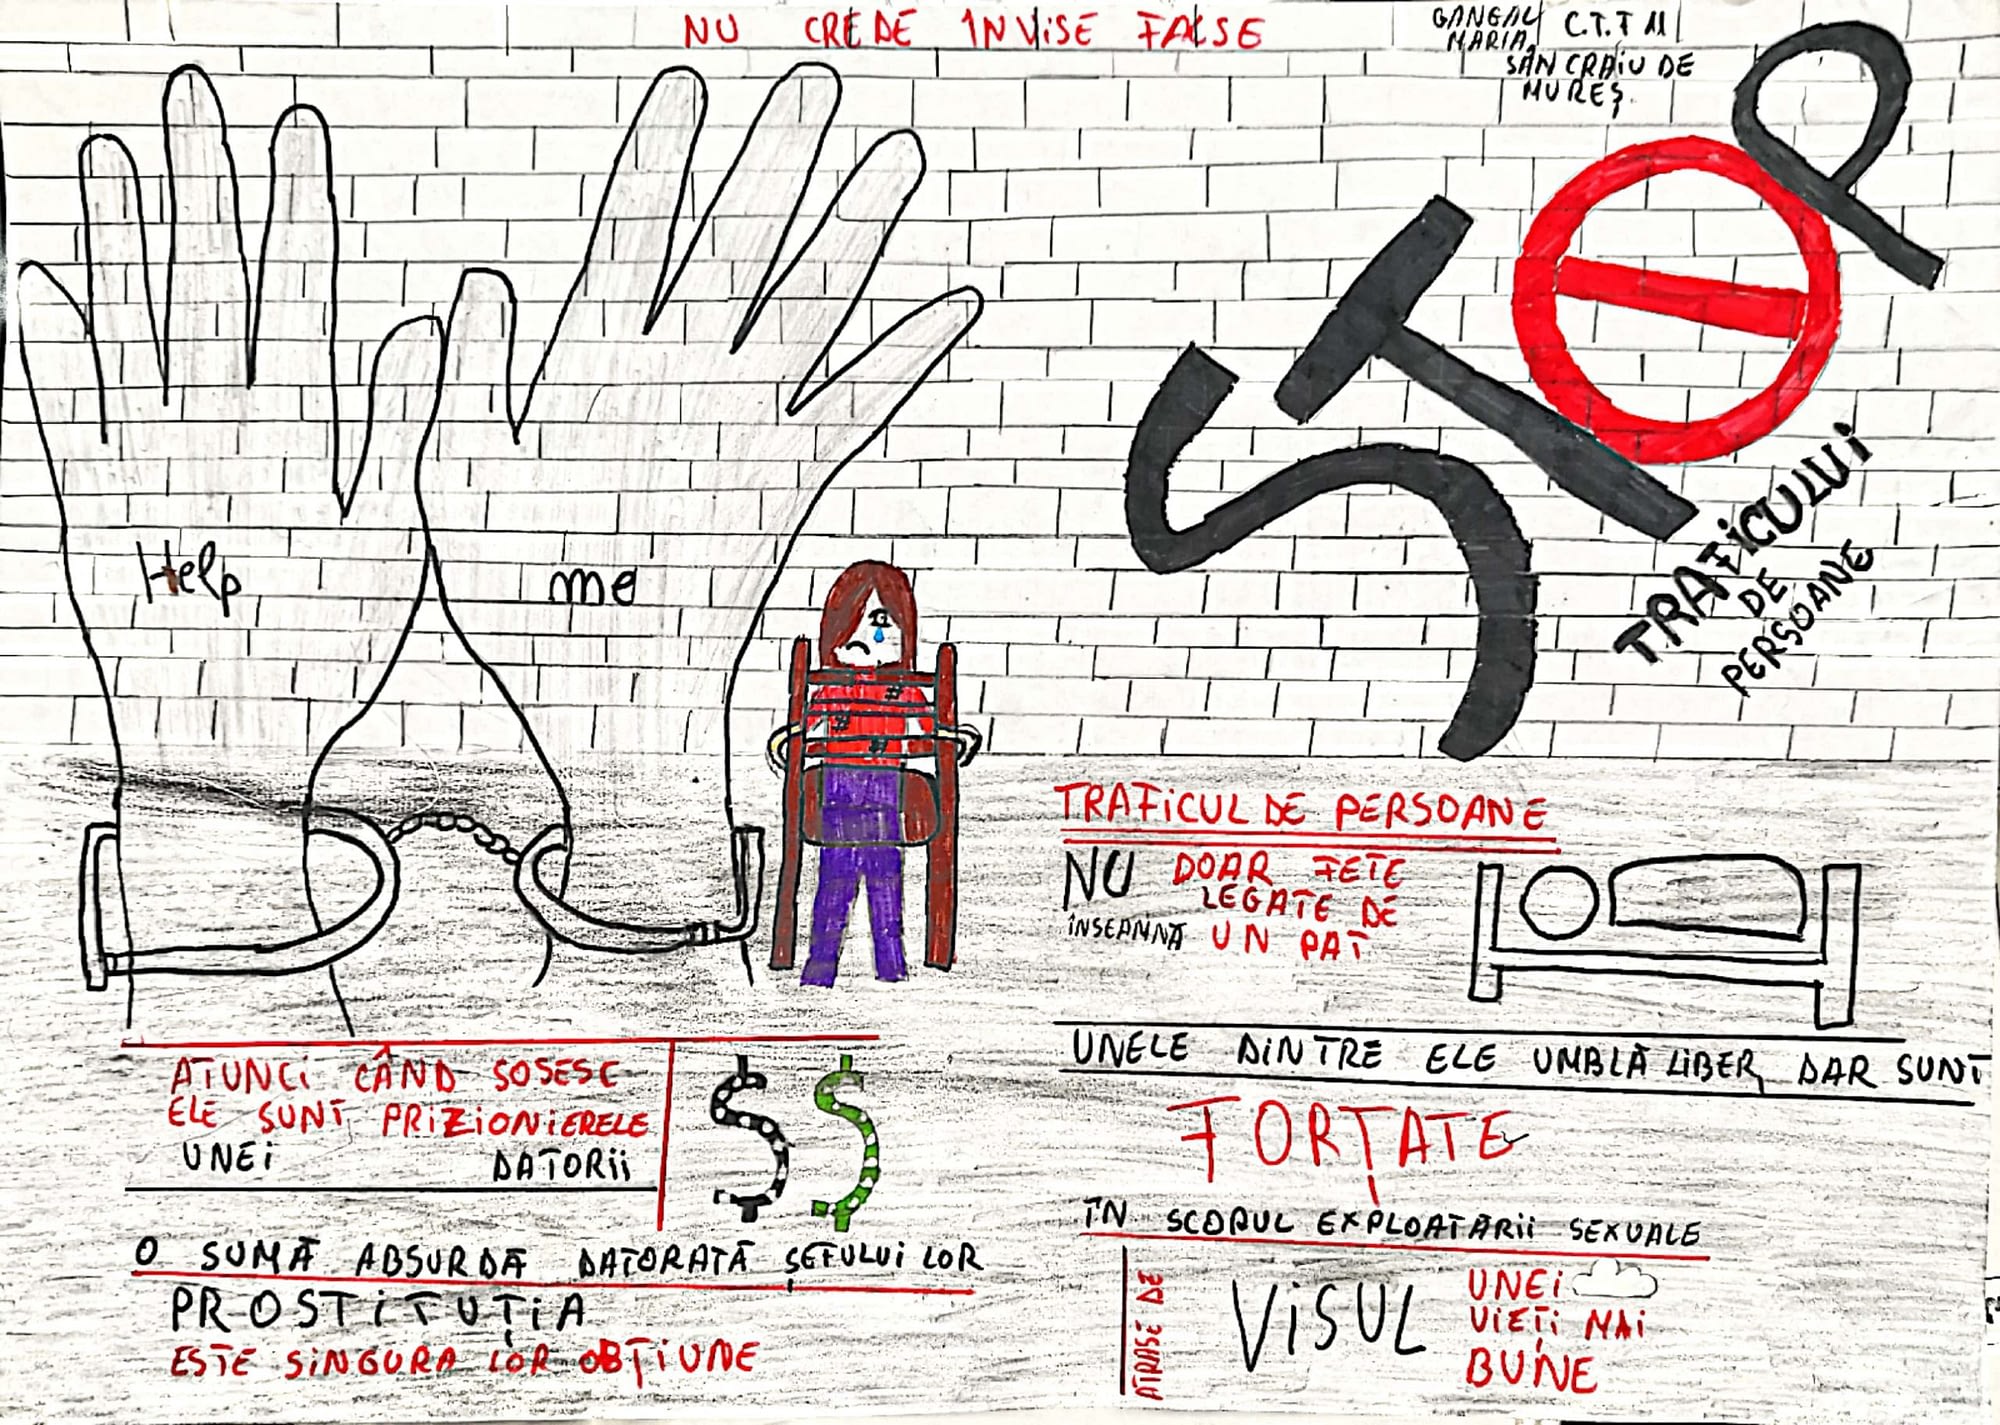 NU CREDE ÎN VISE FALSE
GANGAL
MARIA,
C.T.T M
SÂNCRAIU DE
MUREȘ.
STOP
TRAFICULUI
DE
PERSOANE
Help me
TRAFICUL DE PERSOANE
NU
ÎNSEAMNĂ
DOAR FETE
LEGATE DE
UN PAT
UNELE DINTRE ELE UMBLĂ LIBER, DAR SUNT
FORȚATE
ÎN SCOPUL EXPLOATĂRII SEXUALE
ATRASE DE
VISUL
UNEI
VIEȚI MAI
BUNE
ATUNCI CÂND SOSESC
ELE SUNT PRIZIONIERELE
UNEI DATORII
$ $
O SUMĂ ABSURDĂ DATORATĂ ȘEFULUI LOR
PROSTITUȚIA
ESTE SINGURA LOR OBȚIUNE